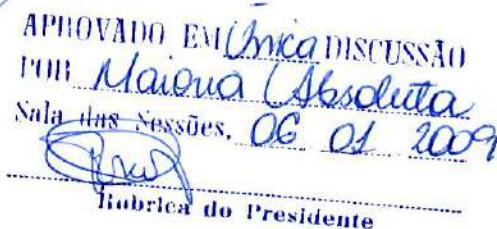 APROVADO EM Única DISCUSSÃO
POR Maioria Absoluta
Sala das Sessões, 06 01 2009
Rubrica do Presidente